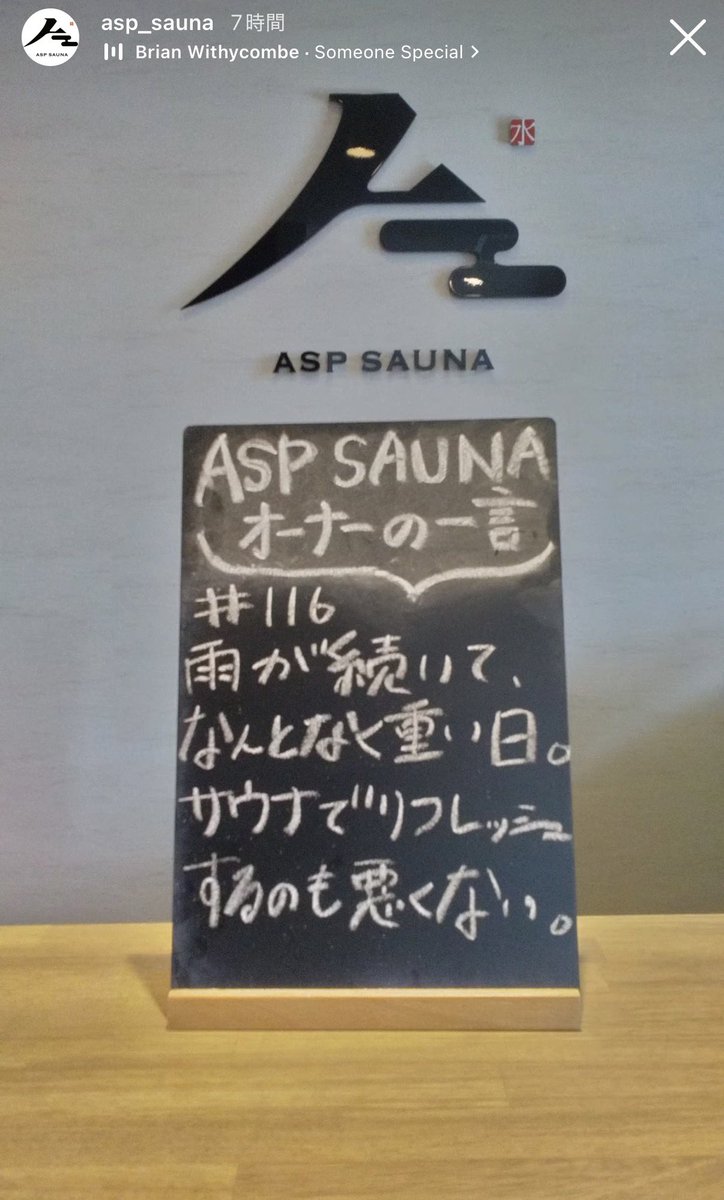 asp_sauna 7時間
Brian Withycombe · Someone Special >
ASP SAUNA
水
ASP SAUNA
ASP SAUNA
オーナーの一言
#116
雨が続いて、
なんとなく重い日。
サウナでリフレッシュ
するのも悪くない。